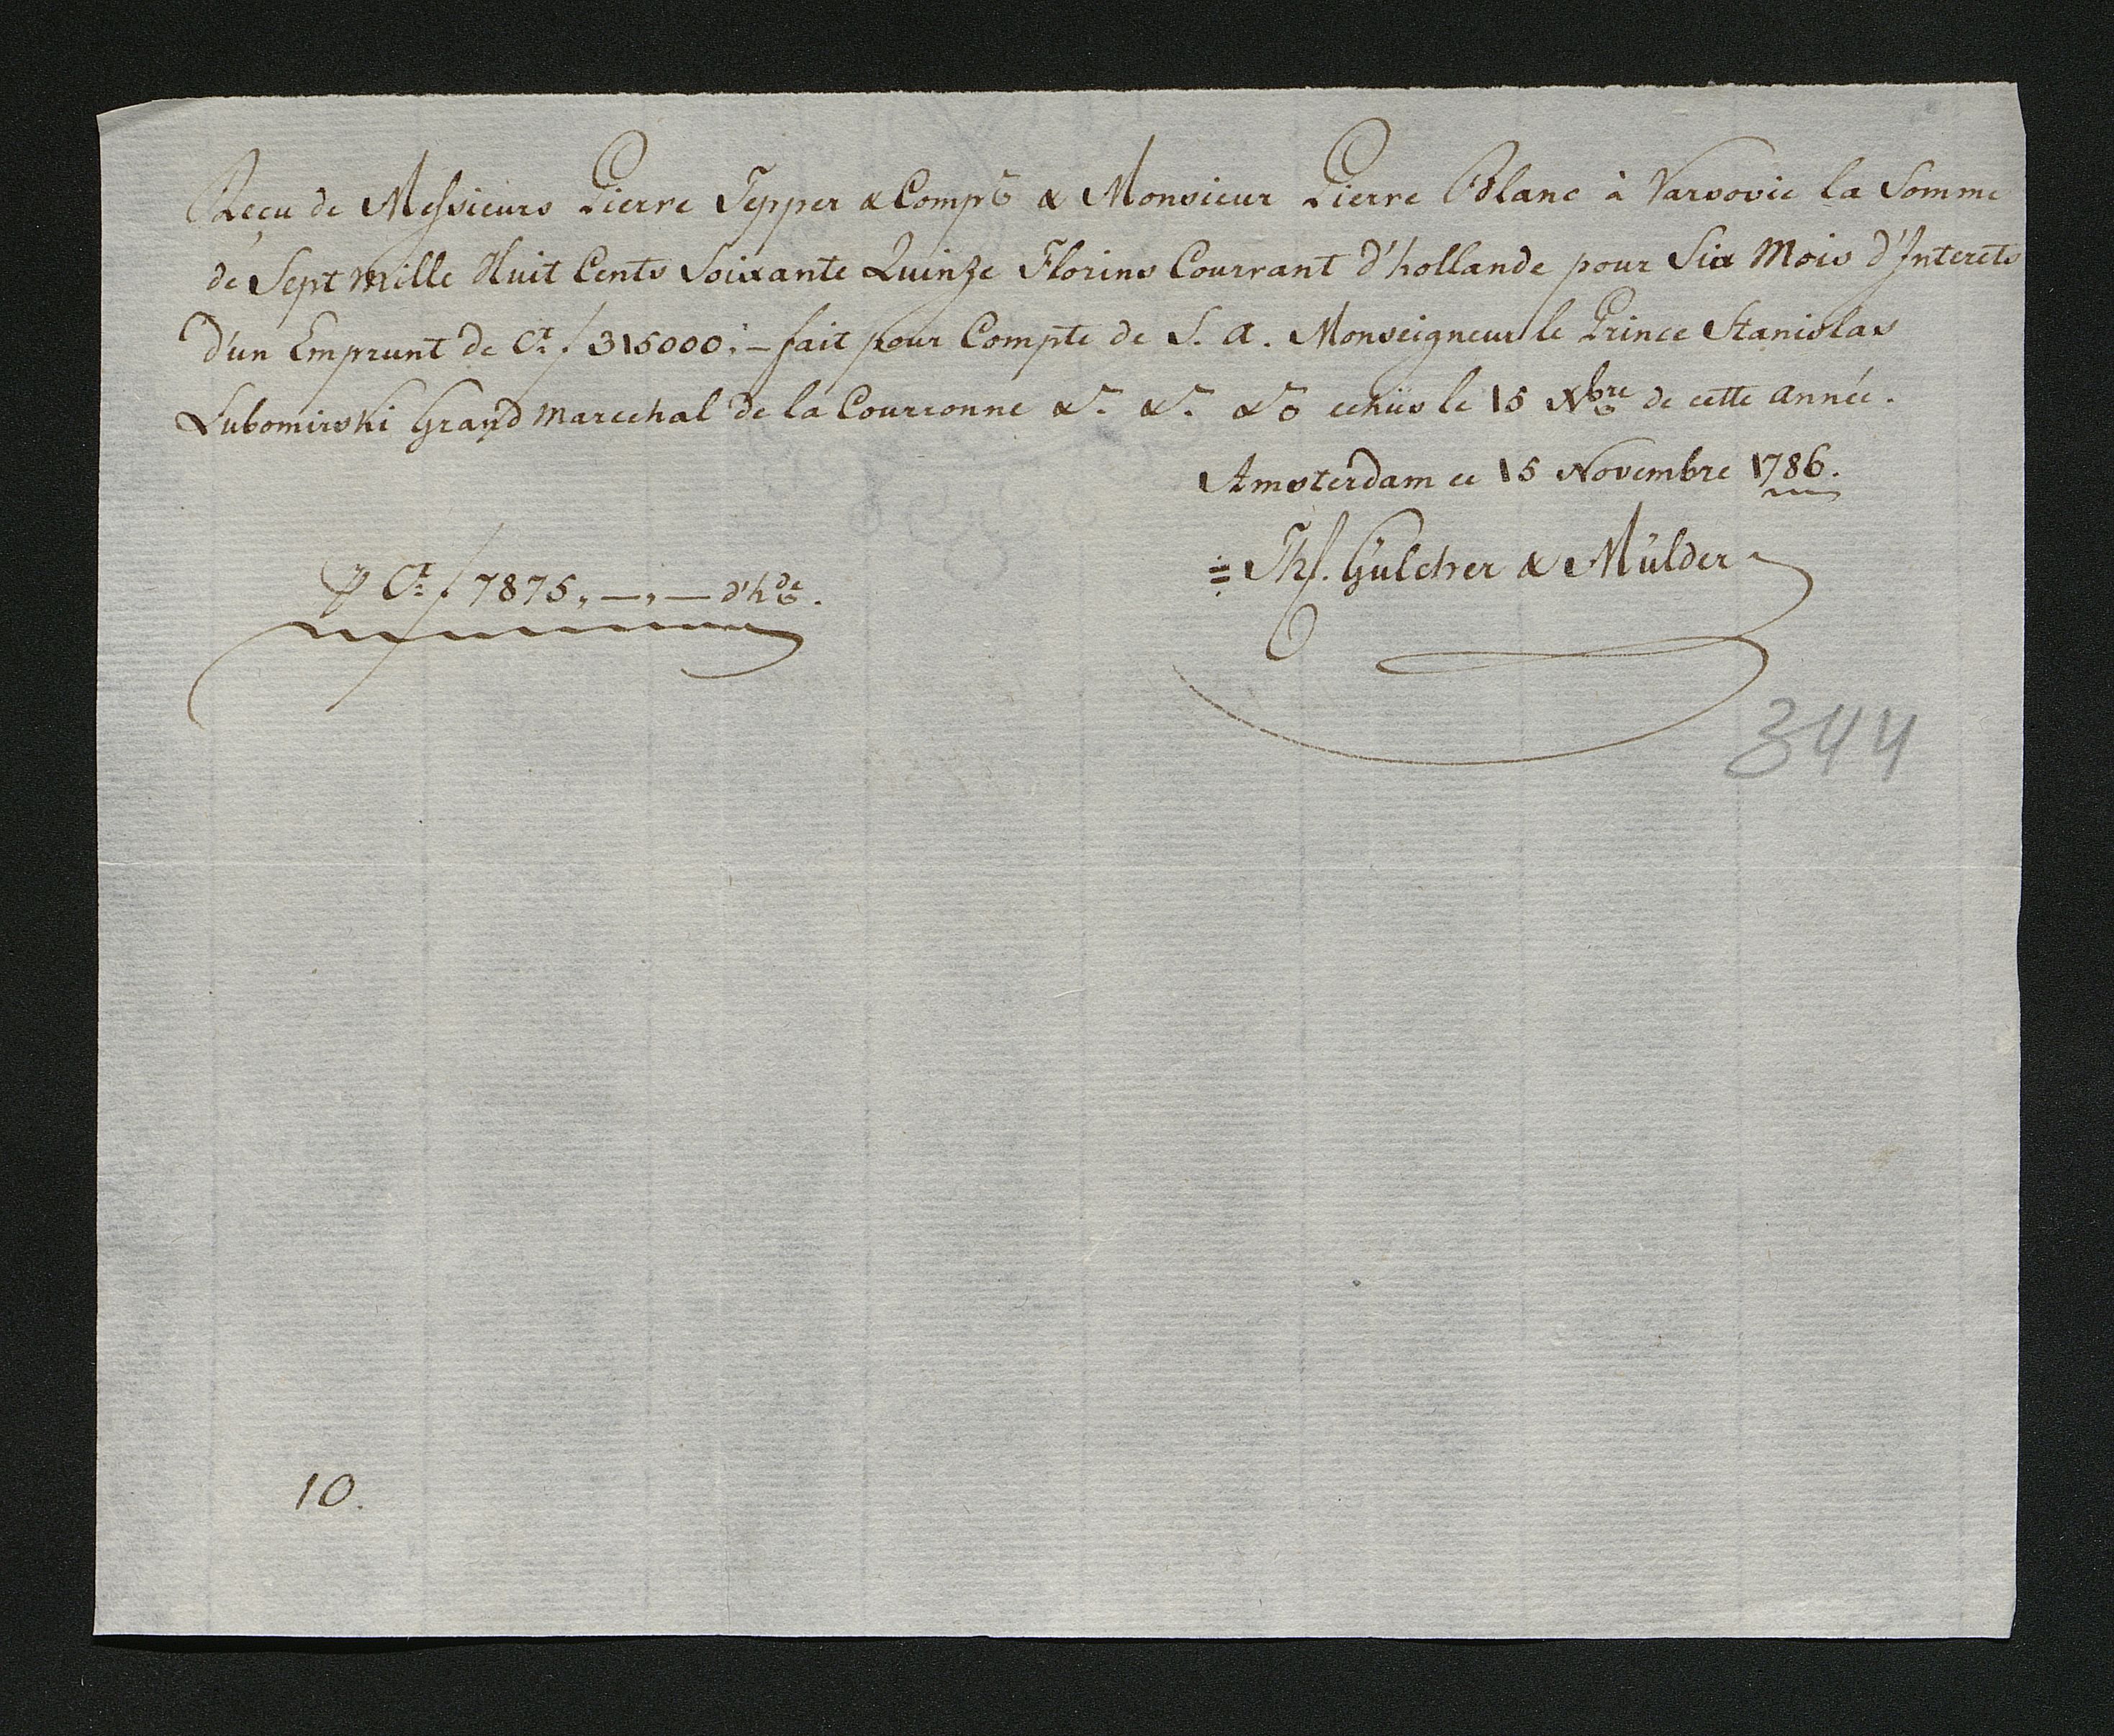 Reçu de Messieurs Pierre Tepper & Compe & Monsieur Pierre Blanc à Varsovie la Somme
de Sept Mille Huit Cents Soixante Quinze Florins Courrant d'hollande pour Six Mois d'Interets
d'un Emprunt de Ct f 315000:- fait pour Compte de S. A. Monseigneur le Prince Stanislas
Lubomirski Grand Marechal de la Courronne &c. &c. &c echûs le 15 Nbre de cette année.
Amsterdam ce 15 Novembre 1786.
Ths. Gülcher & Mülder
Ct f 7875,-,- d'hde.
344
10.